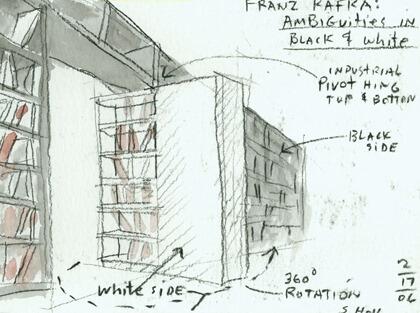 FRANZ KAFKA:
AMBIGUITIES IN
BLACK & White
INDUSTRIAL
PIVOT HING
TOP & BOTTOM
BLACK
SIDE
White SIDE
360°
ROTATION
2
17
06
S Holl